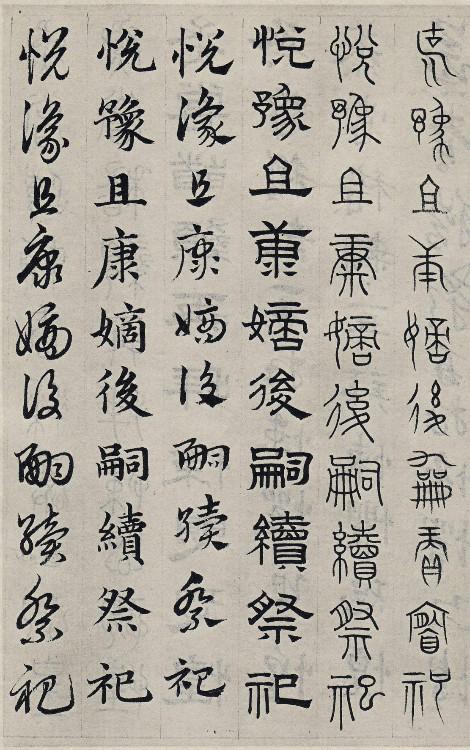 悅豫且康嫡後嗣續祭祀
悅豫且康嫡後嗣續祭祀
悅豫且康嫡後嗣續祭祀
悅豫且康嫡後嗣續祭祀
悅豫且康嫡後嗣續祭祀
悅豫且康嫡後嗣續祭祀